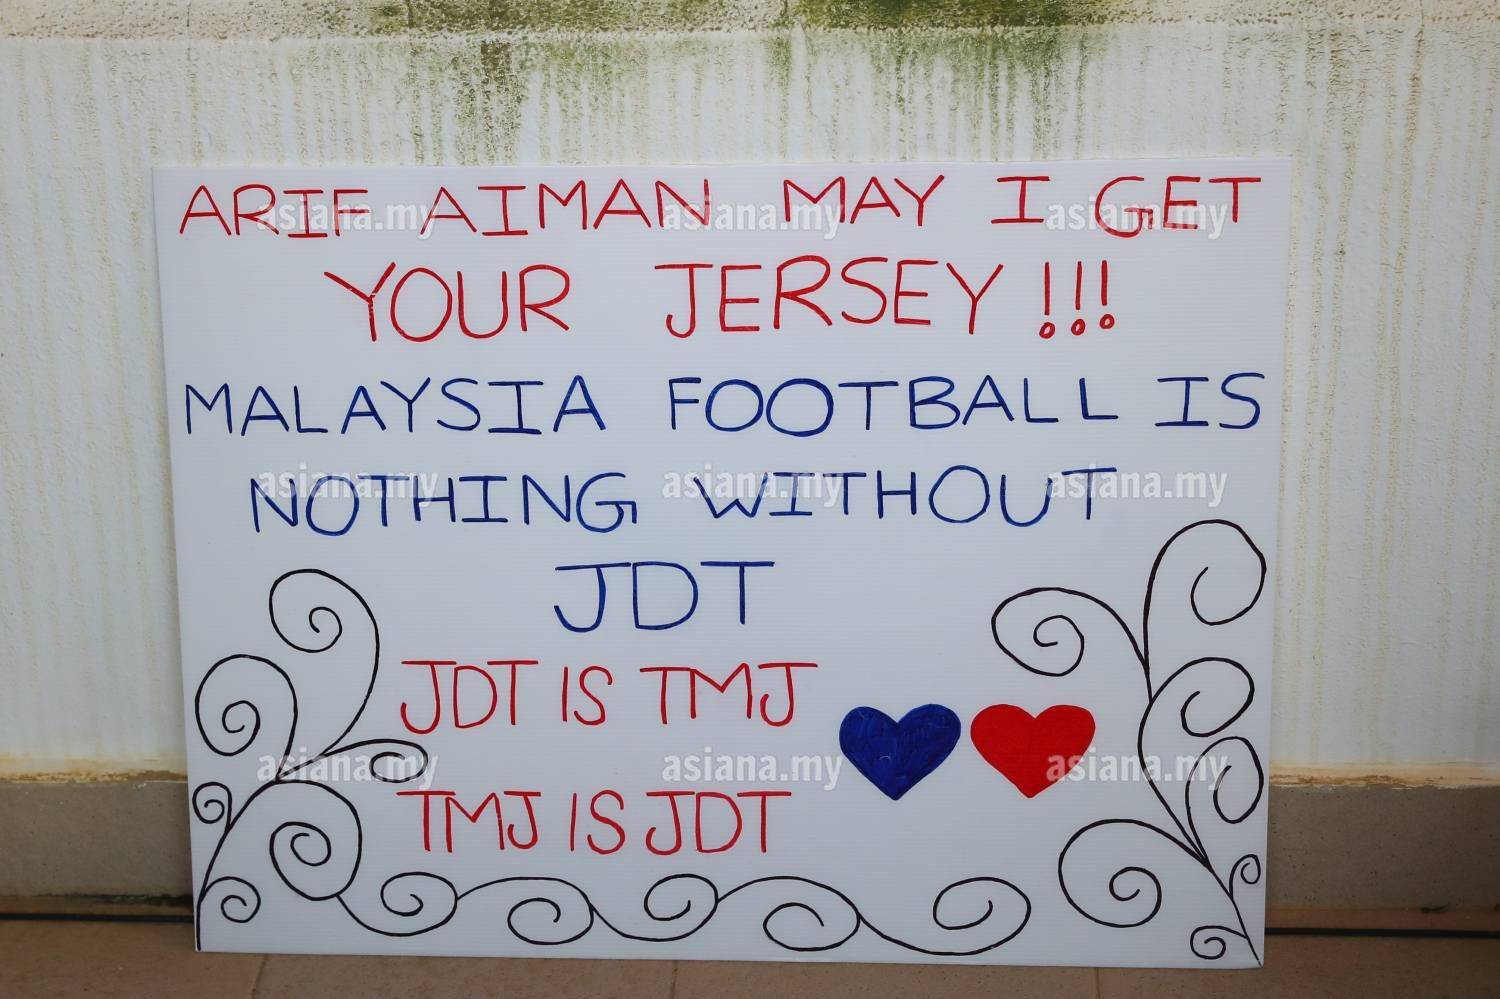 ARIF AIMAN MAY I GET
YOUR JERSEY !!!
MALAYSIA FOOTBALL IS
NOTHING WITHOUT
JDT
JDT IS TMJ
TMJ IS JDT
asiana.my asiana.my asiana.my
asiana.my asiana.my asiana.my
asiana.my asiana.my asiana.my